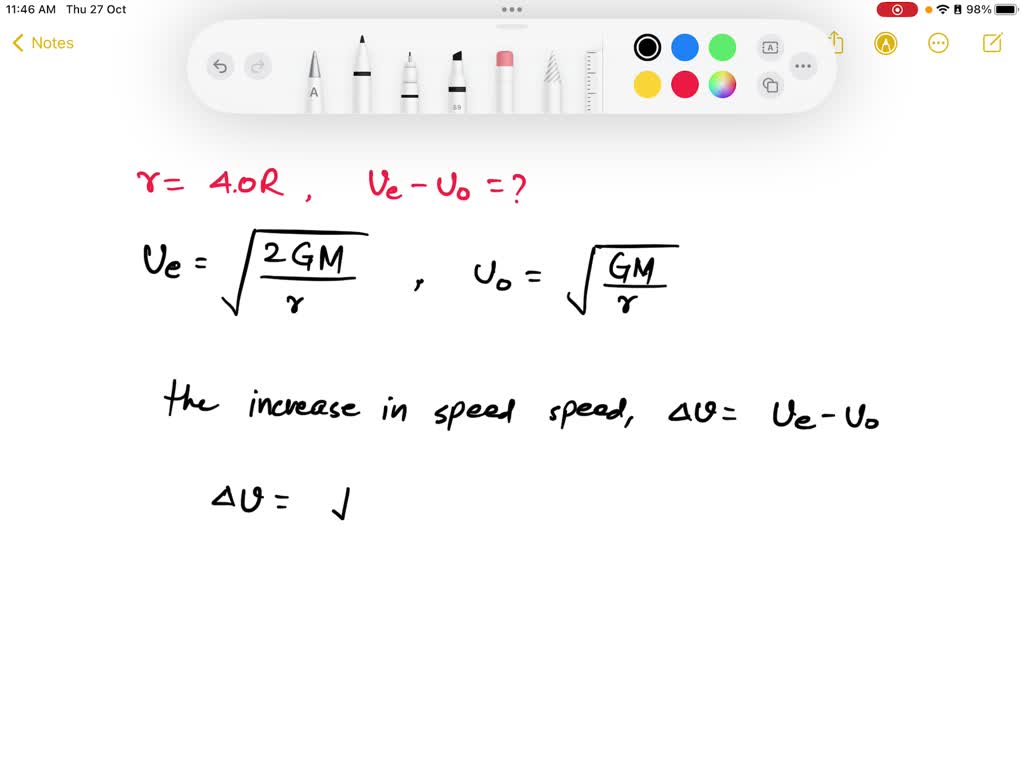 11:46 AM Thu 27 Oct 98%
Notes
A 69 A
r = 4.0R, Ve - Vo = ?
Ve = √(2GM/r), Vo = √(GM/r)
the increase in speed speed, ΔV = Ve - Vo
ΔV = √